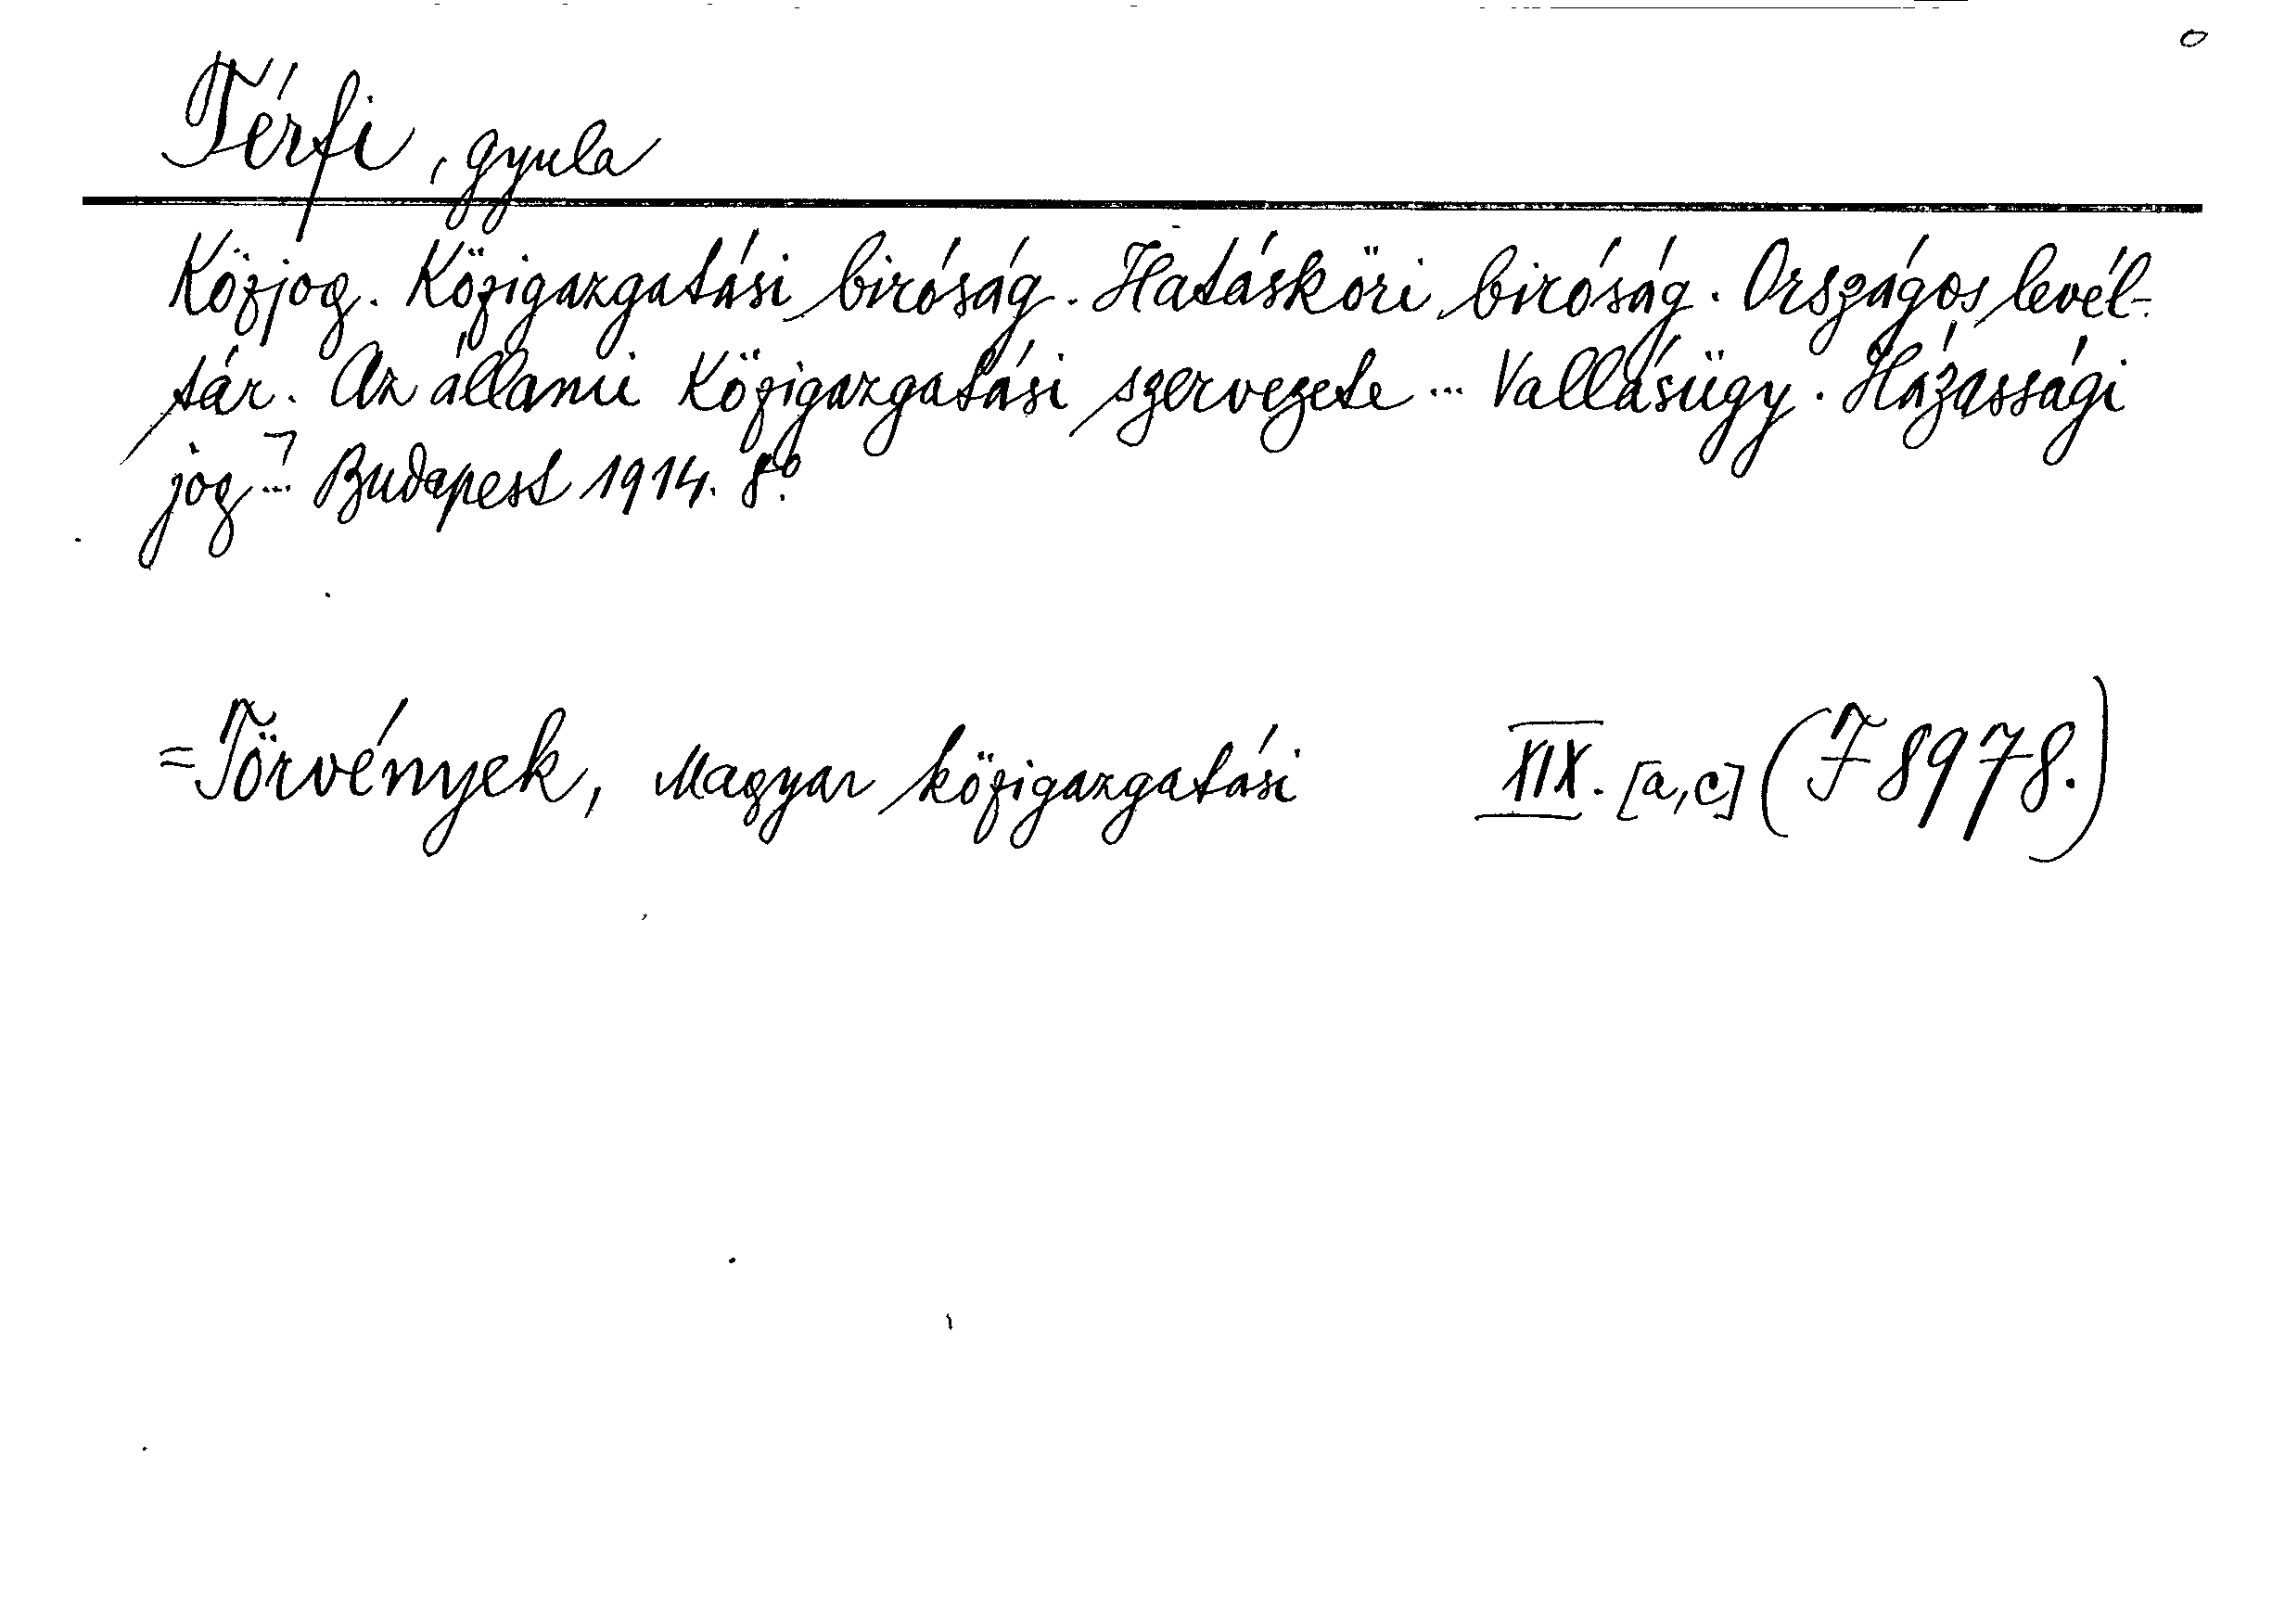 Térfi, Gyula
Közjog. Közigazgatási biróság. Hatásköri biróság. Országos levél-
tár. Az állami közigazgatási szervezete ... Vallásügy. Házassági
jog ... Budapest 1914. 8°.
= Törvények, Magyar közigazgatási XIX. [a,c] (F 8978.)